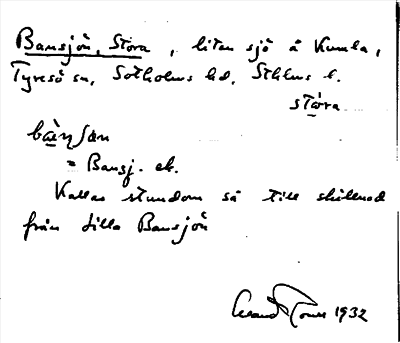 Bansjön, Stora, liten sjö å Kumla,
Tyresö sn, Sotholms hd, Sthlms l.
stóra
bàŋ ſøn
= Bansj. ek.
Kallas stundom så till skillnad
från Lilla Bansjön
1932